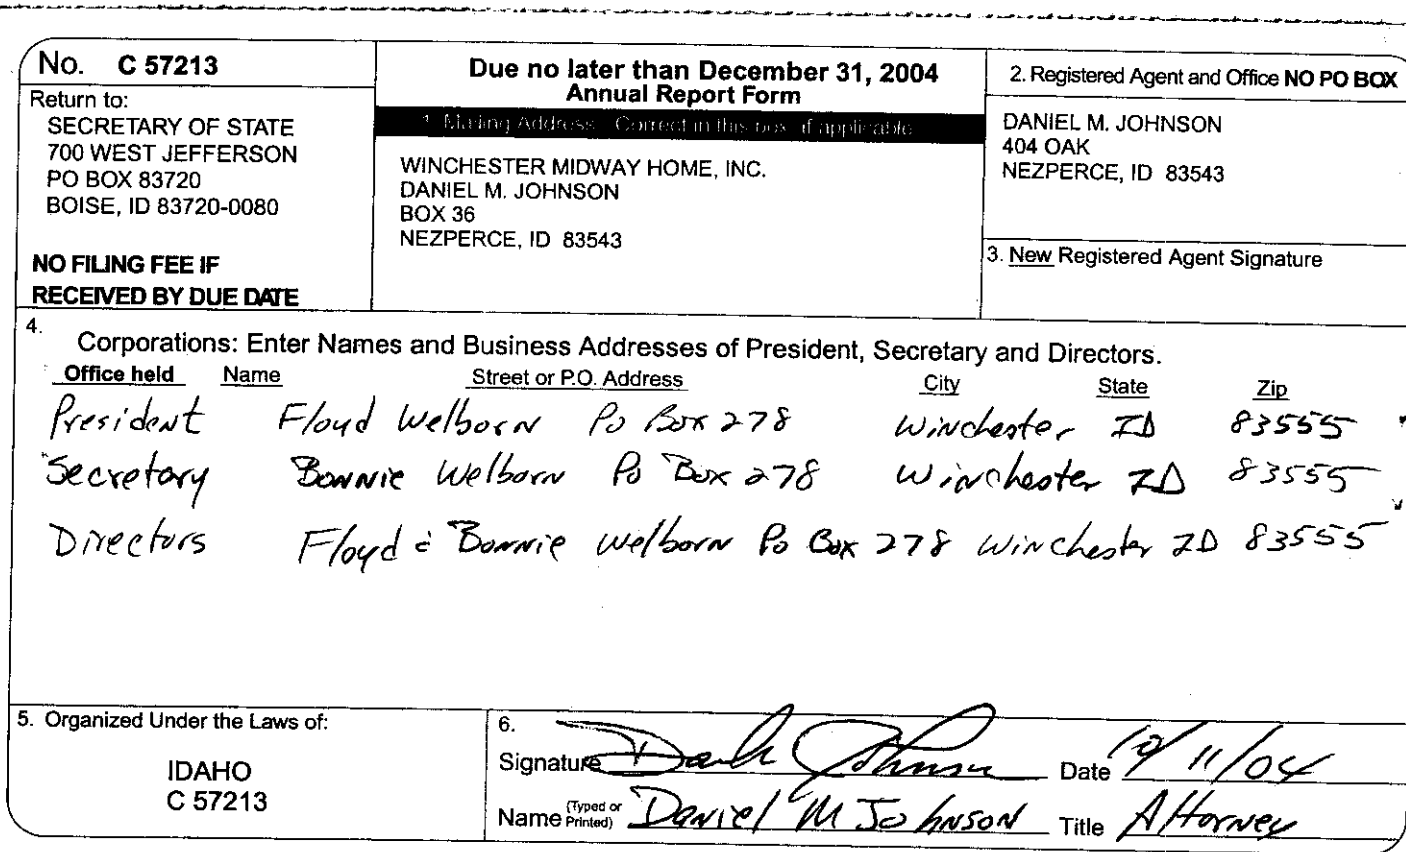 No. C 57213
Return to:
SECRETARY OF STATE
700 WEST JEFFERSON
PO BOX 83720
BOISE, ID 83720-0080
NO FILING FEE IF
RECEIVED BY DUE DATE
Due no later than December 31, 2004
Annual Report Form
1. Mailing Address: Correct in this box if applicable
WINCHESTER MIDWAY HOME, INC.
DANIEL M. JOHNSON
BOX 36
NEZPERCE, ID 83543
2. Registered Agent and Office NO PO BOX
DANIEL M. JOHNSON
404 OAK
NEZPERCE, ID 83543
3. New Registered Agent Signature
4.
Corporations: Enter Names and Business Addresses of President, Secretary and Directors.
Office held Name Street or P.O. Address City State Zip
President Floyd Welborn Po Box 278 Winchester ID 83555
Secretary Bonnie Welborn Po Box 278 Winchester ID 83555
Directors Floyd & Bonnie Welborn Po Box 278 Winchester ID 83555
5. Organized Under the Laws of:
IDAHO
C 57213
6.
Signature Johnson Date 10/11/04
Name (Typed or Printed) Daniel M Johnson Title Attorney